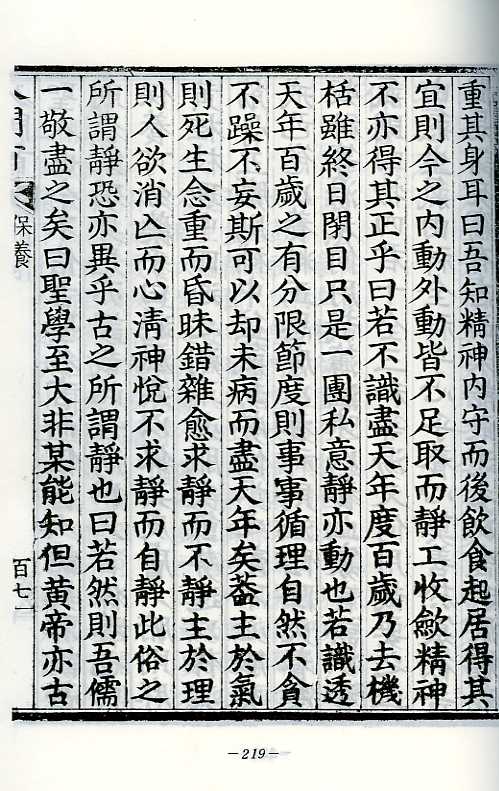 重其身耳曰吾知精神內守而後飮食起居得其
宜則今之內動外動皆不足取而靜工收斂精神
不亦得其正乎曰若不識盡天年度百歲乃去機
栝雖終日閉目只是一團私意靜亦動也若識透
天年百歲之有分限節度則事事循理自然不貪
不躁不妄斯可以却未病而盡天年矣蓋主於氣
則死生念重而昏昧錯雜愈求靜而不靜主於理
則人欲消亾而心淸神悅不求靜而自靜此俗之
所謂靜恐亦異乎古之所謂靜也曰若然則吾儒
一敬盡之矣曰聖學至大非某能知但黃帝亦古
保養
百七一
－219－